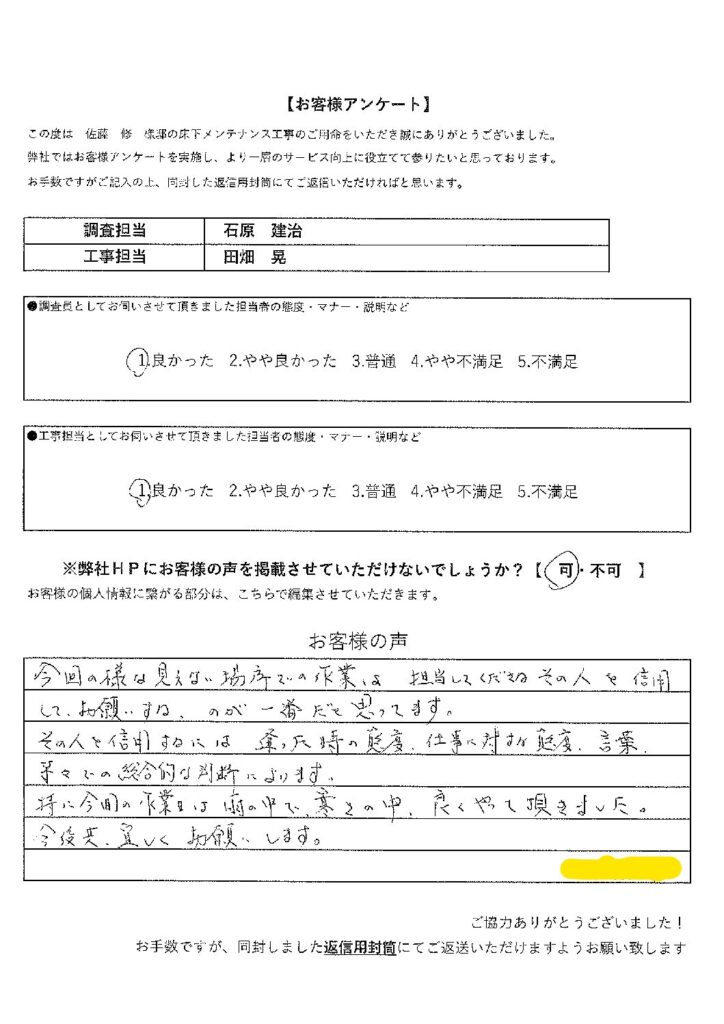 【お客様アンケート】
この度は 佐藤 修 様邸の床下メンテナンス工事のご用命をいただき誠にありがとうございました。
弊社ではお客様アンケートを実施し、より一層のサービス向上に役立てて参りたいと思っております。
お手数ですがご記入の上、同封した返信用封筒にてご返信いただければと思います。
調査担当 石原 建治
工事担当 田畑 晃
●調査員としてお伺いさせて頂きました担当者の態度・マナー・説明など
1.良かった 2.やや良かった 3.普通 4.やや不満足 5.不満足
●工事担当としてお伺いさせて頂きました担当者の態度・マナー・説明など
1.良かった 2.やや良かった 3.普通 4.やや不満足 5.不満足
※弊社HPにお客様の声を掲載させていただけないでしょうか？【 可・不可 】
お客様の個人情報に繋がる部分は、こちらで編集させていただきます。
お客様の声
今回の様な見えない場所での作業は 担当してくださるその人を信用
して、お願いする、のが一番だと思ってます。
その人を信用するには 逢った時の態度、仕事に対する態度、言葉、
等々での総合的な判断によります。
特に今回の作業日は雨の中で、寒さの中、良くやって頂きました。
今後共、宜しく お願いします。
ご協力ありがとうございました！
お手数ですが、同封しました返信用封筒にてご返送いただけますようお願い致します